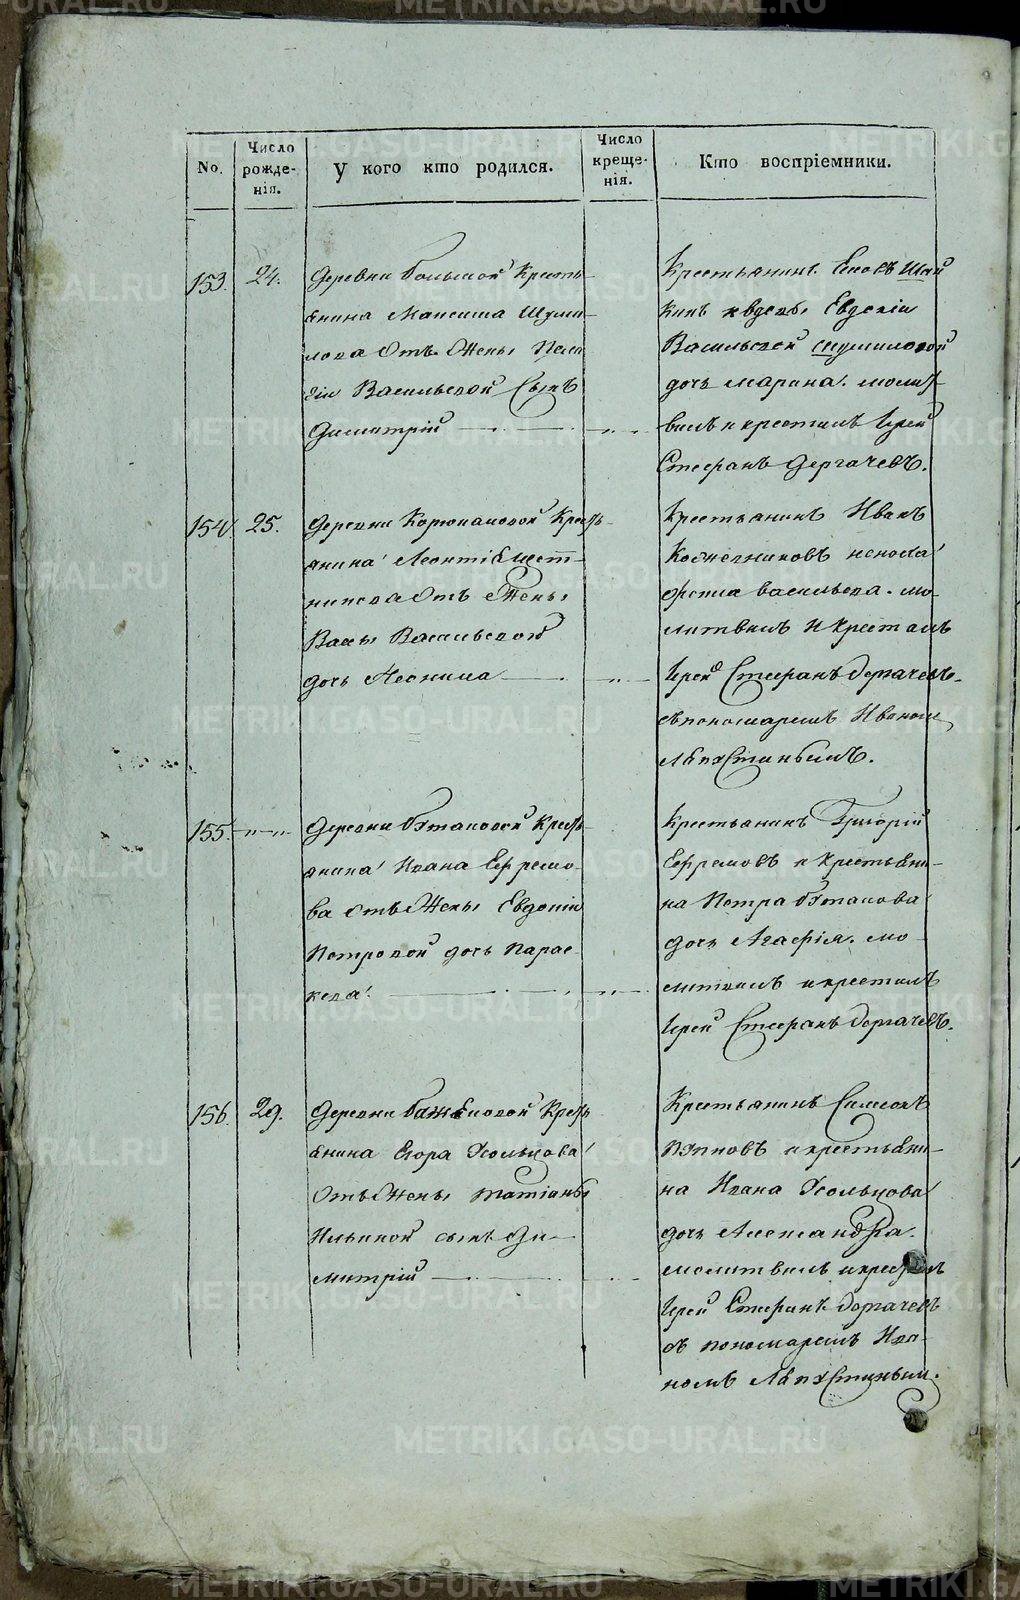 METRIKI.GASO-URAL.RU
No.
Число рожде-нія.
У кого кто родился.
Число креще-нія.
Кто воспріемники.
153. 24.
деревни Большой Кресть-
янина Максима Шуми-
лова отъ Жены
Васильевой Сынъ
Димитрій
Крестьянинъ
кинъ и вдовы Евдокіи
Васильевой Шумиловой
дочь Марина. молит-
вилъ и крестилъ Іерей
Стефанъ Дергачевъ.
154. 25.
деревни Крест-
янина Леонтія
отъ Жены
Васильевой
дочь
Крестьянинъ Иванъ
васильева. мо-
литвилъ и крестилъ
Іерей Стефанъ Дергачевъ
съ пономаремъ Иваномъ
155. -"-
деревни Крест-
янина Ивана Ефремо-
ва отъ Жены Евдокіи
Петровой дочь Парас-
кева.
Крестьянинъ Григорій
Ефремовъ и крестьяни-
на Петра
дочь Агафія. мо-
литвилъ и крестилъ
Іерей Стефанъ Дергачевъ.
156. 29.
деревни Крест-
янина Егора Усольцова
отъ Жены татіаны
Ильиной сынъ Ди-
митрій
Крестьянинъ Симеонъ
и крестьяни-
на Ивана Усольцова
дочь Александра.
молитвилъ и крестилъ
Іерей Стефанъ Дергачевъ
съ пономаремъ Ива-
номъ